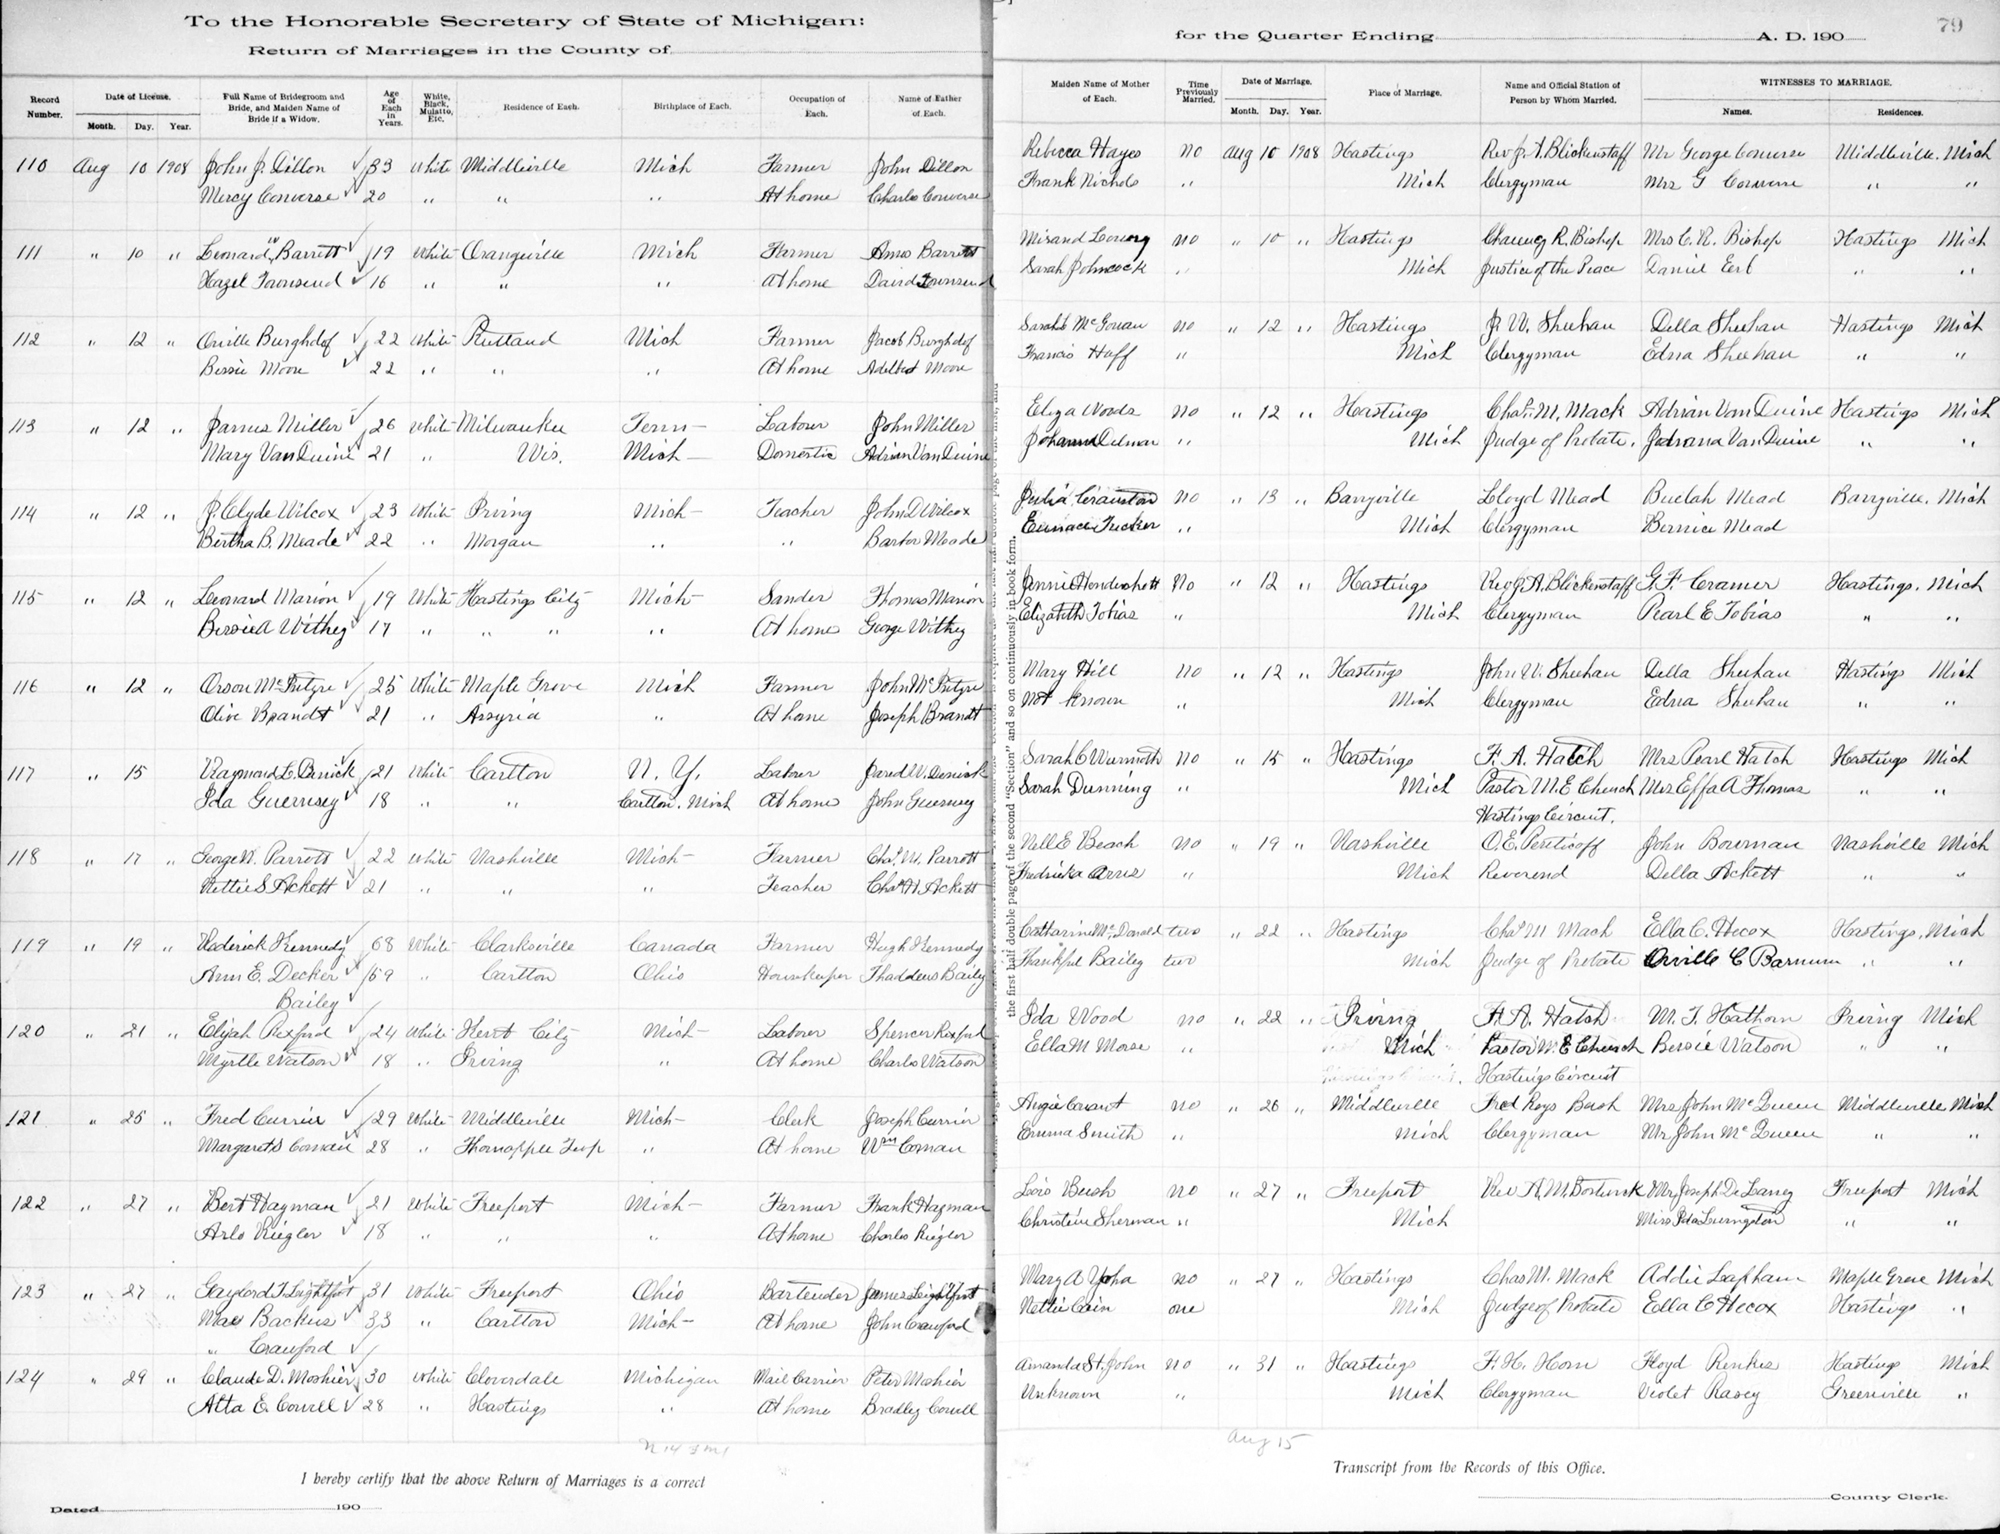 To the Honorable Secretary of State of Michigan:
Return of Marriages in the County of
for the Quarter Ending A. D. 190
79
Record Number. Date of License. Month. Day. Year. Full Name of Bridegroom and Bride, and Maiden Name of Bride if a Widow. Age of Each in Years. White, Black, Mulatto, Etc. Residence of Each. Birthplace of Each. Occupation of Each. Name of Father of Each. Maiden Name of Mother of Each. Time Previously Married. Date of Marriage. Month. Day. Year. Place of Marriage. Name and Official Station of Person by Whom Married. WITNESSES TO MARRIAGE. Names. Residences.
110 Aug 10 1908 John J. Dillon 33 White Middleville Mich Farmer John Dillon Rebecca Hayes no Aug 10 1908 Hastings Rev J. A. Blickenstaff Mr George Converse Middleville. Mich
Mercy Converse 20 " " " At home Charles Converse Frank Nichols " Mich Clergyman Mrs G Converse " "
111 " 10 " Leonard W Barrett 19 White Orangeville Mich Farmer Amos Barrett no " 10 " Hastings Chauncy R. Bishop Mrs C. R. Bishop Hastings Mich
Hazel Townsend 16 " " " At home David Townsend Sarah Johncock " Mich Justice of the Peace Daniel Erb " "
112 " 12 " Orville Burghdof 22 White Rutland Mich Farmer Jacob Burghdof Sarah E McGowan no " 12 " Hastings J. W. Sheehan Della Sheehan Hastings Mich
Bessie Moore 22 " " " At home Adelbert Moore Francis Huff " Mich Clergyman Edna Sheehan " "
113 " 12 " James Miller 26 White Milwaukee Tenn Laborer John Miller Eliza Woods no " 12 " Hastings Chas. M. Mack Adrian Van Duine Hastings Mich
Mary VanDuine 21 " Wis. Mich Domestic Adrian Van Duine Mich Judge of Probate. Jadrana Van Duine " "
114 " 12 " J. Clyde Wilcox 23 White Irving Mich Teacher John D Wilcox Julia Cranston no " 13 " Barryville Lloyd Mead Buelah Mead Barryville. Mich
Bertha B. Meade 22 " Morgan " " Barton Meade Eunace Tucker " Mich Clergyman Bernice Mead
115 " 12 " Leonard Marion 19 White Hastings City Mich Sander Thomas Marion Jennie Hendershott No " 12 " Hastings Rev J. A. Blickenstaff G. F. Cramer Hastings. Mich
Bessie A Withey 17 " " " " At home George Withey Elizabeth Tobias " Mich Clergyman Pearl E Tobias " "
116 " 12 " Orson McIntyre 25 White Maple Grove Mich Farmer John McIntyre Mary Hill no " 12 " Hastings John W. Sheehan Della Sheehan Hastings Mich
Olive Brandt 21 " Assyria " At home Joseph Brandt Not Known " Mich Clergyman Edna Sheehan " "
117 " 15 Raymond L. Denick 21 White Carlton N. Y. Laborer Jared W. Denick Sarah C Wermoth no " 15 " Hastings F. A. Hatch Mrs Pearl Hatch Hastings Mich
Ida Guernsey 18 " " Carlton. Mich At home John Guernsey Sarah Dunning " Mich Pastor M. E Church Mrs Effa A Thomas " "
Hastings Circuit.
118 " 17 " George W. Parrott 22 White Nashville Mich Farmer Chas. W. Parrott Nell E Beach no " 19 " Nashville O. E. John Bowman Nashville Mich
Nettie S Ackett 21 " " " Teacher Chas H Ackett Fredricka " Mich Reverend Della Ackett " "
119 " 19 " Roderick Kennedy 68 White Clarksville Canada Farmer Hugh Kennedy Catharine McDonald two " 22 " Hastings Chas M Mack Ella C. Hecox Hastings. Mich
Ann E. Decker 59 " Carlton Ohio Housekeeper Thaddeus Bailey Thankful Bailey two Mich Judge of Probate Orville C Barnum " "
Bailey
120 " 21 " Elijah Rexford 24 White Hart City Mich Laborer Spencer Rexford Ida Wood no " 22 " Irving F. A. Hatch M. T. Hathorn Irving Mich
Myrtle Watson 18 " Irving " At home Charles Watson Ella M Morse " Mich Pastor M. E Church Bessie Watson " "
Hastings Circuit
121 " 25 " Fred Currier 29 White Middleville Mich Clerk Joseph Currier Angie no " 26 " Middleville Fred Roys Bush Mrs John McQueen Middleville Mich
Margaret S Coman 28 " Thornapple Twp " At home Wm Coman Emma Smith " Mich Clergyman Mr John McQueen " "
122 " 27 " Bert Hayman 21 White Freeport Mich Farmer Frank Hayman Lois Bush no " 27 " Freeport Rev A. M. Mrs Joseph De Laney Freeport Mich
Arlo Riegler 18 " " " At home Charles Riegler Christein Sherman " Mich Miss Ida Livingston " "
123 " 27 " Gaylord T. Lightfoot 31 White Freeport Ohio Bartender James Lightfoot Mary A no " 27 " Hastings Chas M. Mack Addie Lapham Maple Grove Mich
Mae Backus 33 " Carlton Mich At home John Crawford Nettie Cain one Mich Judge of Probate Ella C Hecox Hastings "
" Crawford
124 " 29 " Claude D. Moshier 30 White Cloverdale Michigan Mail Carrier Peter Moshier Amanda St. John no " 31 " Hastings F. H. Horn Floyd Renkes Hastings Mich
Atta E. Cowell 28 " Hastings " At home Bradley Cowell Unknown " Mich Clergyman Violet Rasey Greenville "
Aug 15
I hereby certify that the above Return of Marriages is a correct
Transcript from the Records of this Office.
Dated 190
County Clerk.
the first half double page of the second "Section" and so on continuously in book form.